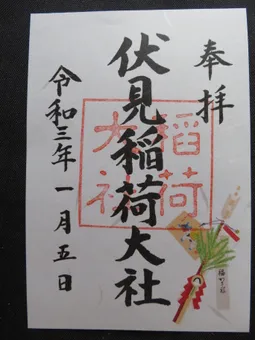 奉拝
伏見稲荷大社
稲荷
大社
令和三年一月五日